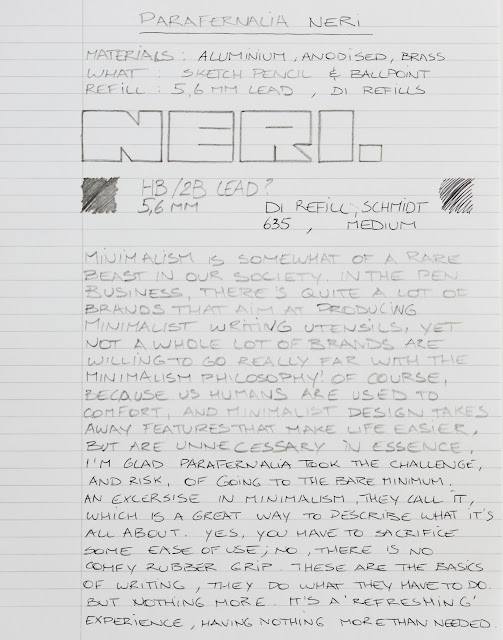 PARAFERNALIA NERI
MATERIALS : ALUMINIUM, ANODISED, BRASS
WHAT : SKETCH PENCIL & BALLPOINT
REFILL : 5,6 MM LEAD , D1 REFILLS
NERI.
HB/2B LEAD?
5,6 MM D1 REFILL, SCHMIDT
635 , MEDIUM
MINIMALISM IS SOMEWHAT OF A RARE
BEAST IN OUR SOCIETY. IN THE PEN
BUSINESS, THERE'S QUITE A LOT OF
BRANDS THAT AIM AT PRODUCING
MINIMALIST WRITING UTENSILS, YET
NOT A WHOLE LOT OF BRANDS ARE
WILLING TO GO REALLY FAR WITH THE
MINIMALISM PHILOSOPHY! OF COURSE,
BECAUSE US HUMANS ARE USED TO
COMFORT, AND MINIMALIST DESIGN TAKES
AWAY FEATURES THAT MAKE LIFE EASIER,
BUT ARE UNNECESSARY IN ESSENCE.
I'M GLAD PARAFERNALIA TOOK THE CHALLENGE,
AND RISK, OF GOING TO THE BARE MINIMUM.
AN EXCERSISE IN MINIMALISM, THEY CALL IT,
WHICH IS A GREAT WAY TO DESCRIBE WHAT IT'S
ALL ABOUT. YES, YOU HAVE TO SACRIFICE
SOME EASE OF USE; NO, THERE IS NO
COMFY RUBBER GRIP. THESE ARE THE BASICS
OF WRITING, THEY DO WHAT THEY HAVE TO DO.
BUT NOTHING MORE. IT'S A 'REFRESHING'
EXPERIENCE, HAVING NOTHING MORE THAN NEEDED.